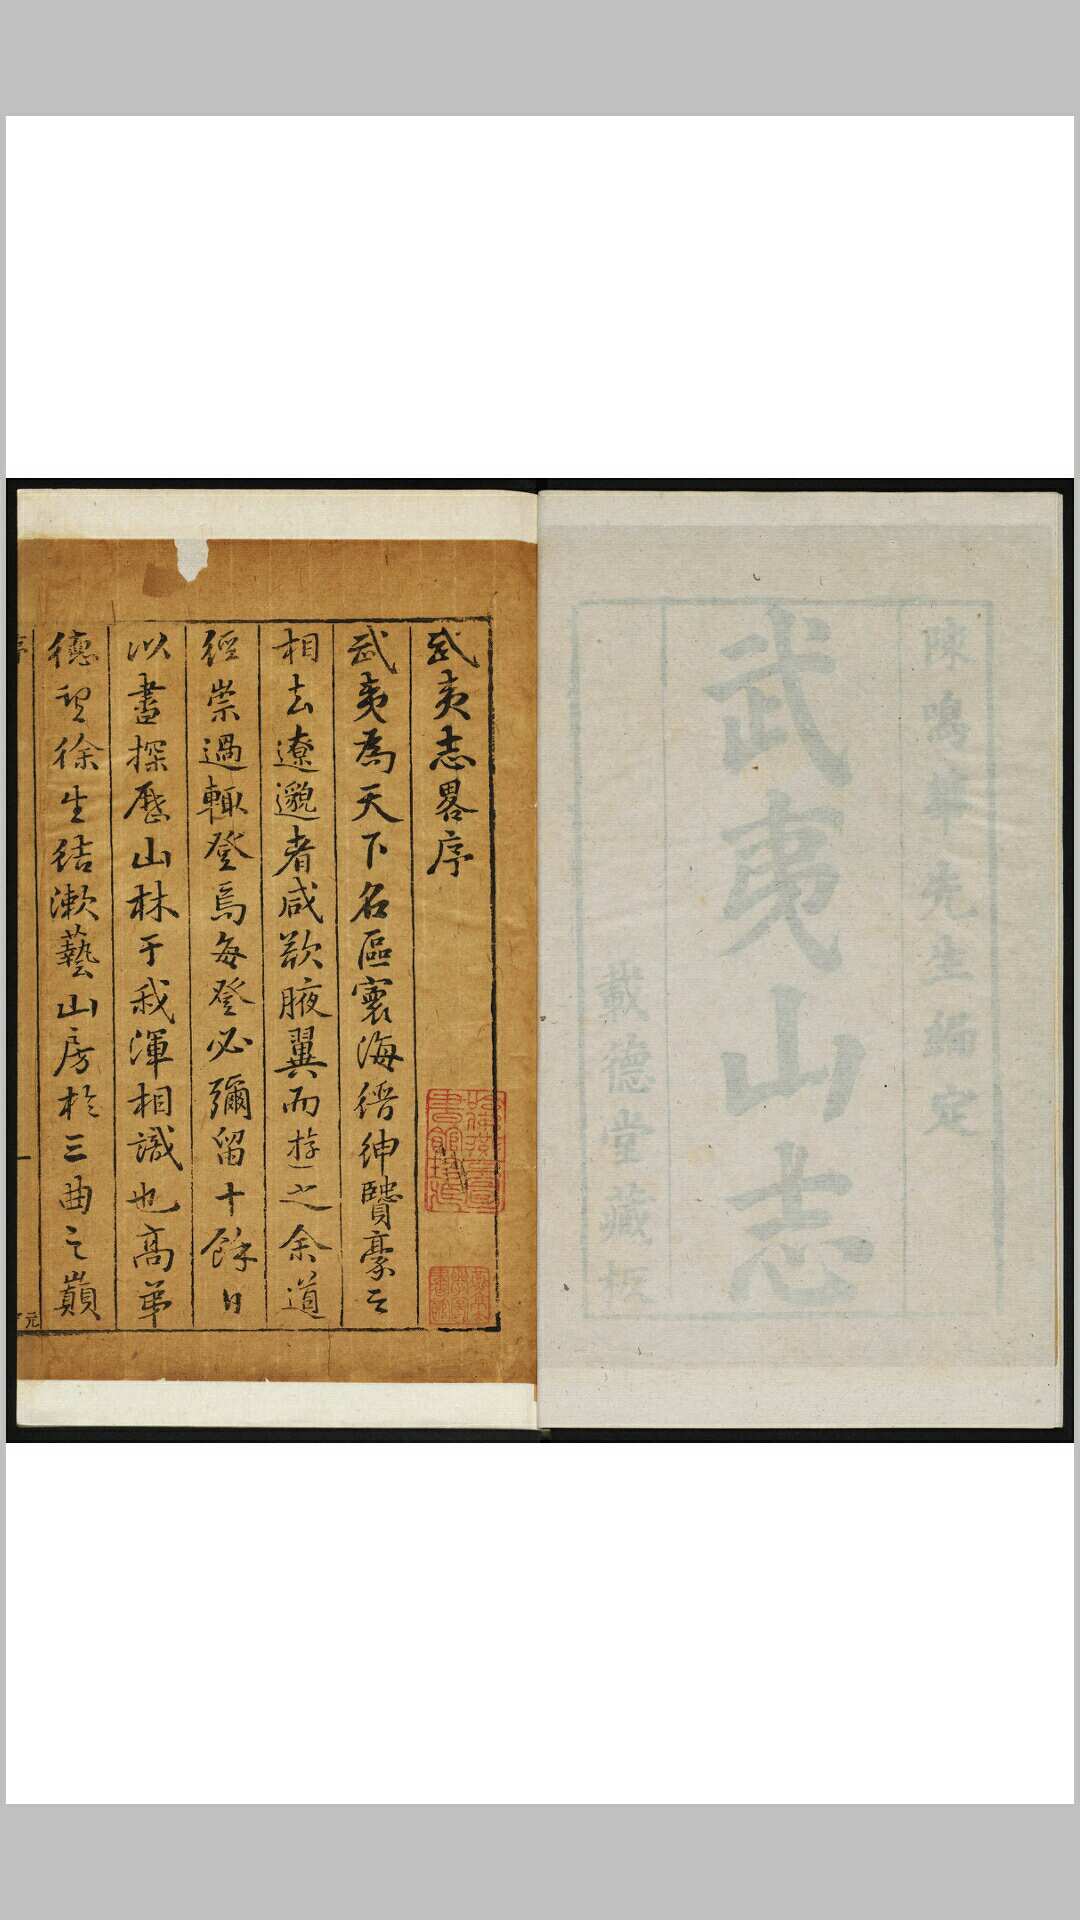 陳鳴華先生編定
武夷山志
戴德堂藏板
武夷志畧序
武夷為天下名區寰海縉紳贒豪之
相去遼邈者咸欲腋翼而游之余道
經崇過輒登焉每登必彌留十餘日
以盡探歷山林于我渾相識也高第
德望徐生結漱藝山房於三曲之巔
序
一